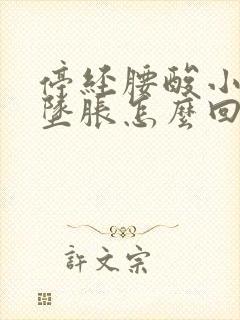 停经腰酸小
坠脹怎麼回
許文宗